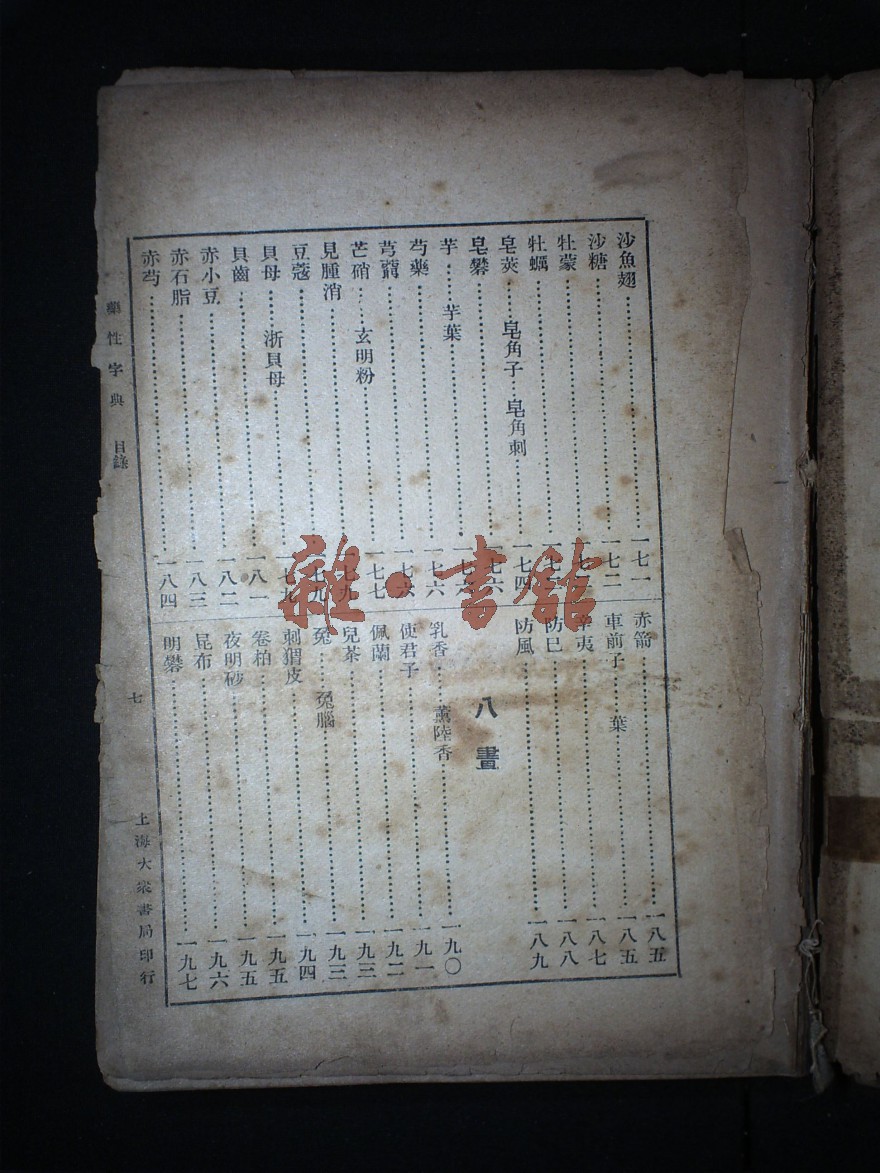 沙魚翅……一七一
沙糖……一七二
牡蒙……一七
牡蠣……一七
皂莢……皂角子……皂角刺……一七四
皂礬……一七六
芋……芋葉……一七六
芍藥……一七六
芎藭……一七六
芒硝……玄明粉……一七七
見腫消……一七九
豆蔻……一七九
貝母……浙貝母……一七九
貝齒……一八一
赤小豆……一八二
赤石脂……一八三
赤芍……一八四
赤箭……一八五
車前子 葉……一八五
辛夷……一八七
防巳……一八八
防風……一八九
八畫
乳香……薰陸香……一九〇
使君子……一九一
佩蘭……一九二
兒茶……一九三
兔……兔腦……一九三
刺猬皮……一九四
卷柏……一九五
夜明砂……一九五
昆布……一九六
明礬……一九七
藥性字典 目錄
七
上海大眾書局印行
雜·書館